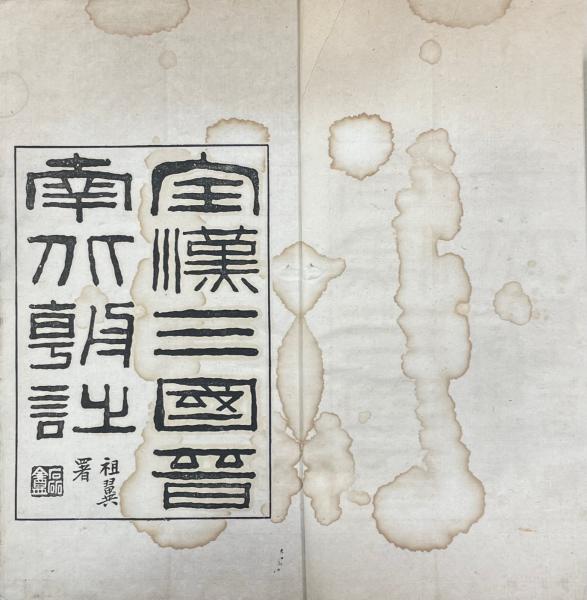 全漢三國晉
南北朝詩
祖翼
署